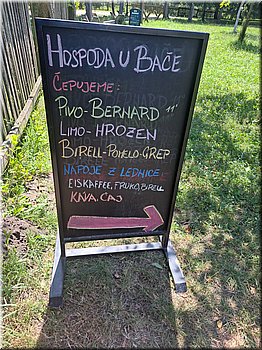 HOSPODA U BAČE
ČEPUJEME:
PIVO-BERNARD 11°
LIMO-HROZEN
BIRELL-POMELO-GREP
NÁPOJE Z LEDNICE
EISKAFFEE, FRUKO, BIRELL
KÁVA, ČAJ